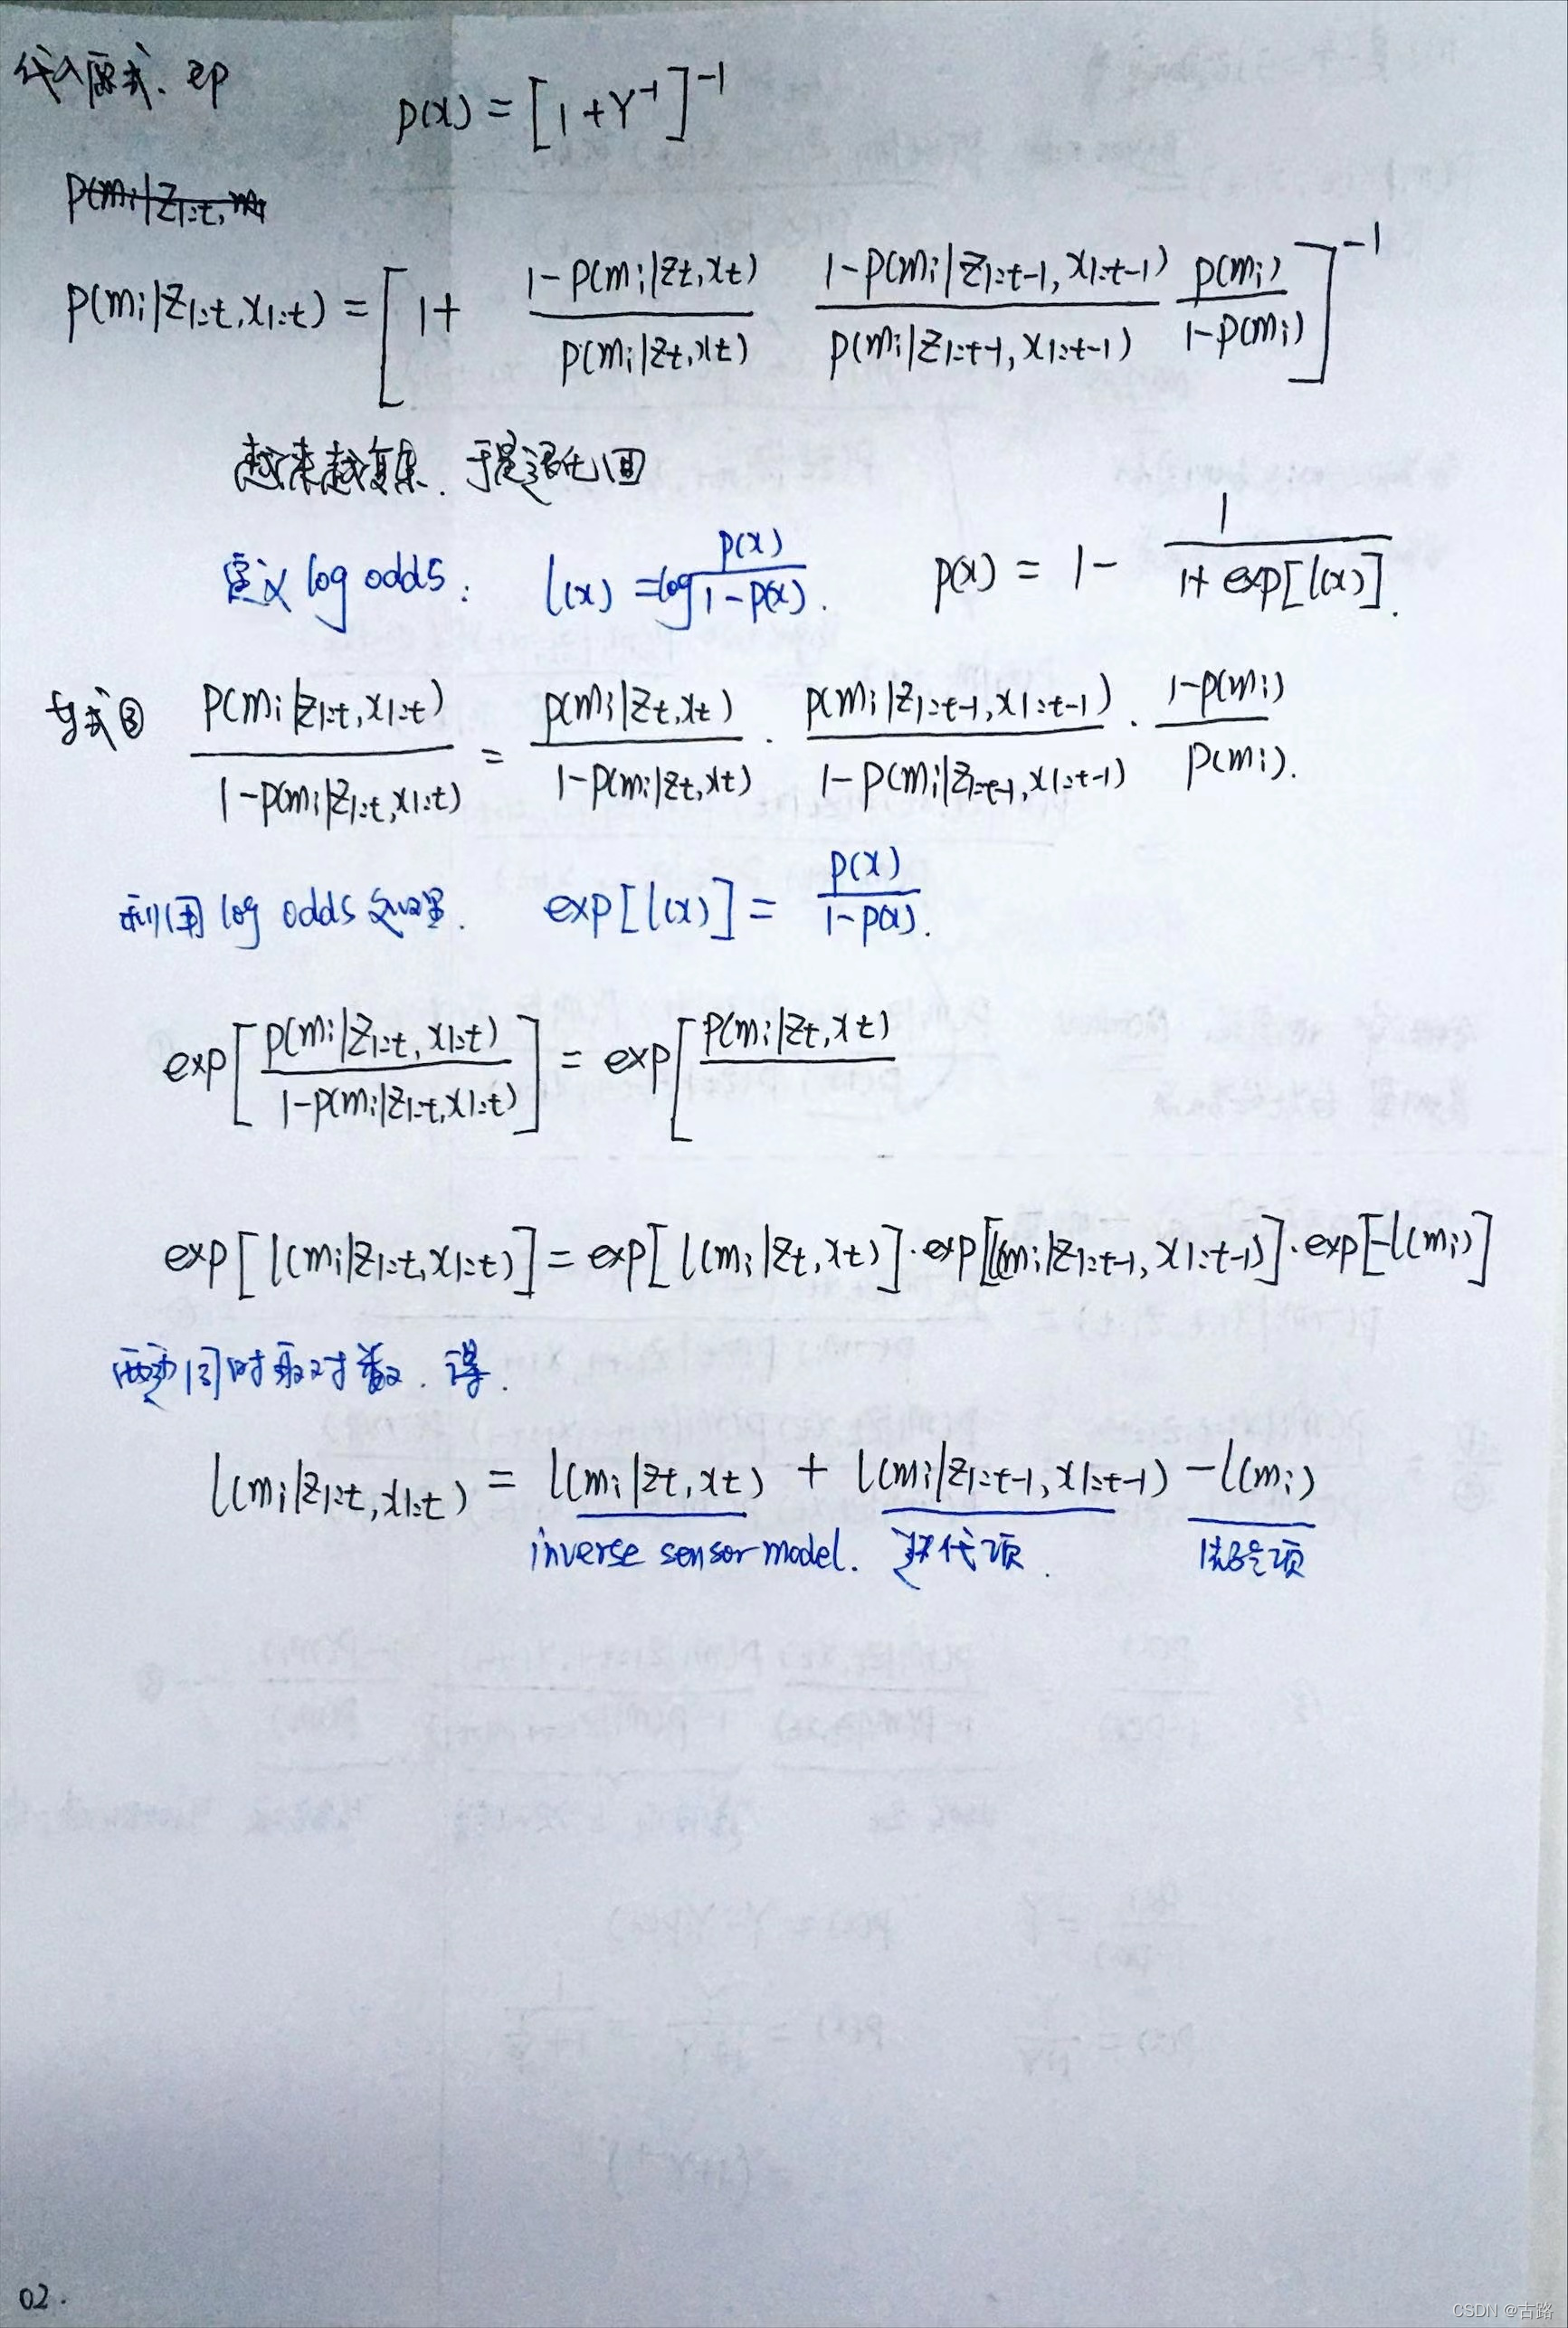 代入原式、即
p(x) = [1+Y⁻¹]⁻¹
p(mᵢ|z₁:t, m
p(mᵢ|z₁:t, x₁:t) = [1+ (1-p(mᵢ|zt,xt))/(p(mᵢ|zt,xt)) (1-p(mᵢ|z₁:t-1, x₁:t-1))/(p(mᵢ|z₁:t-1, x₁:t-1)) p(mᵢ)/(1-p(mᵢ))]⁻¹
越来越复杂. 于是退化回
定义 log odds: l(x) = log p(x)/(1-p(x)). p(x) = 1 - 1/(1+exp[l(x)]).
与式③ p(mᵢ|z₁:t, x₁:t)/(1-p(mᵢ|z₁:t, x₁:t)) = p(mᵢ|zt,xt)/(1-p(mᵢ|zt,xt)) · p(mᵢ|z₁:t-1, x₁:t-1)/(1-p(mᵢ|z₁:t-1, x₁:t-1)) · (1-p(mᵢ))/p(mᵢ).
利用 log odds 处理. exp[l(x)] = p(x)/(1-p(x)).
exp[p(mᵢ|z₁:t, x₁:t)/(1-p(mᵢ|z₁:t, x₁:t))] = exp[p(mᵢ|zt,xt)
exp[l(mᵢ|z₁:t, x₁:t)] = exp[l(mᵢ|zt,xt)]·exp[l(mᵢ|z₁:t-1, x₁:t-1)]·exp[-l(mᵢ)]
两边同时取对数. 得.
l(mᵢ|z₁:t, x₁:t) = l(mᵢ|zt,xt) + l(mᵢ|z₁:t-1, x₁:t-1) - l(mᵢ)
inverse sensor model. 迭代项. 先验项
02.
CSDN @古路